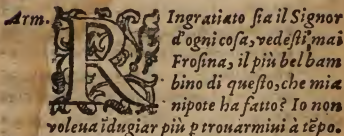 Arm. RIngratiato ſia il Signor
d'ogni coſa, vedeſti, mai
Froſina, il più bel bam
bino di queſto, che mia
nipote ha fatto? Io non
voleua ĩdugiar più ꝑ trouarmiui à tẽpo.